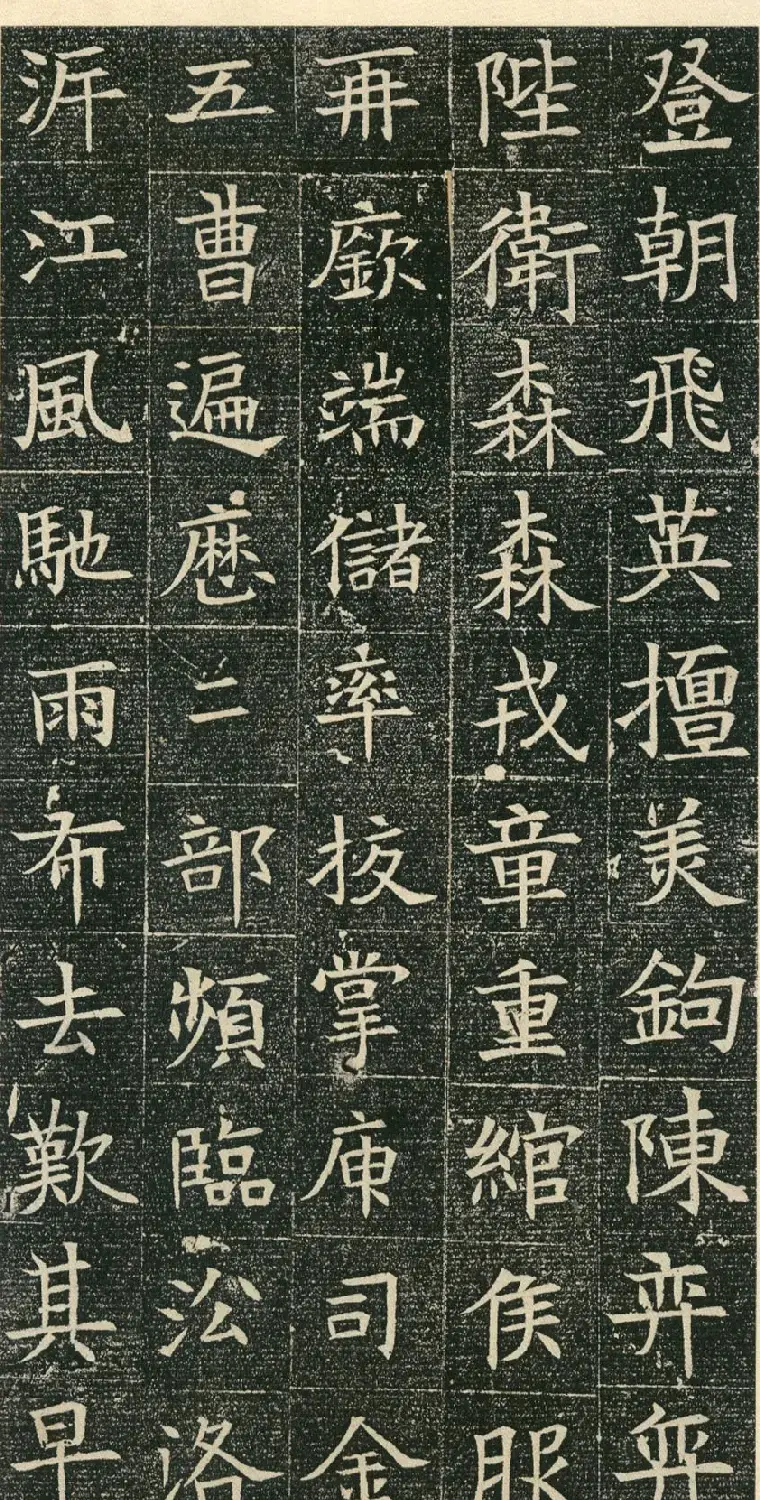 登朝飛英擅美鉤陳弈弈
陛衛森森戎章重綰侯服
再廞端儲率掌庫司金
五曹遍歷二部頻臨㳂洛
泝江風馳雨布去歎其早